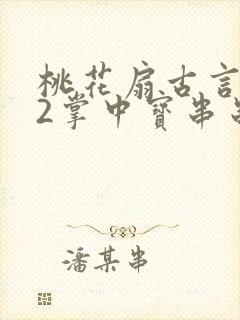 桃花扇古言
2掌中宝串
潘某串